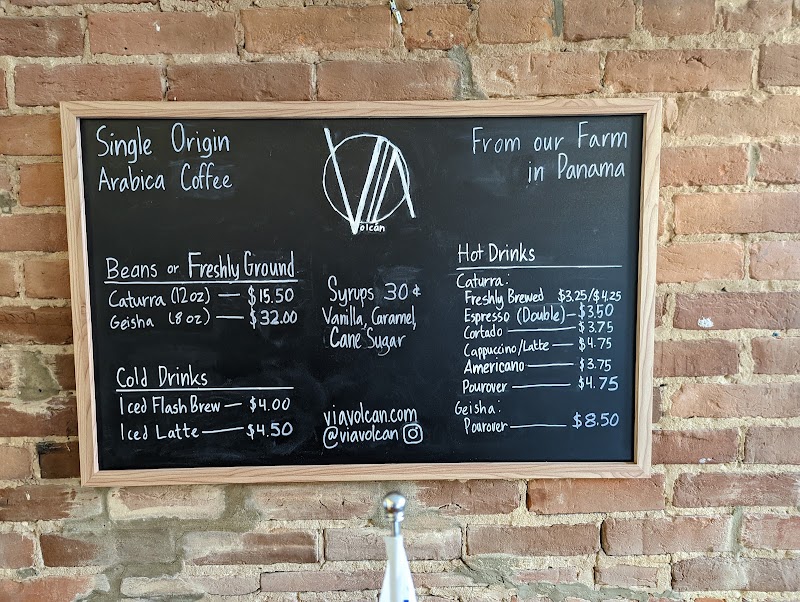 Single Origin
Arabica Coffee
VIA
Volcan
From our Farm
in Panama
Beans or Freshly Ground
Caturra (12oz) — $15.50
Geisha (8oz) — $32.00
Cold Drinks
Iced Flash Brew — $4.00
Iced Latte — $4.50
Syrups 30¢
Vanilla, Caramel,
Cane Sugar
viavolcan.com
@viavolcan
Hot Drinks
Caturra:
Freshly Brewed $3.25/$4.25
Espresso (Double) — $3.50
Cortado — $3.75
Cappuccino/Latte — $4.75
Americano — $3.75
Pourover — $4.75
Geisha:
Pourover — $8.50